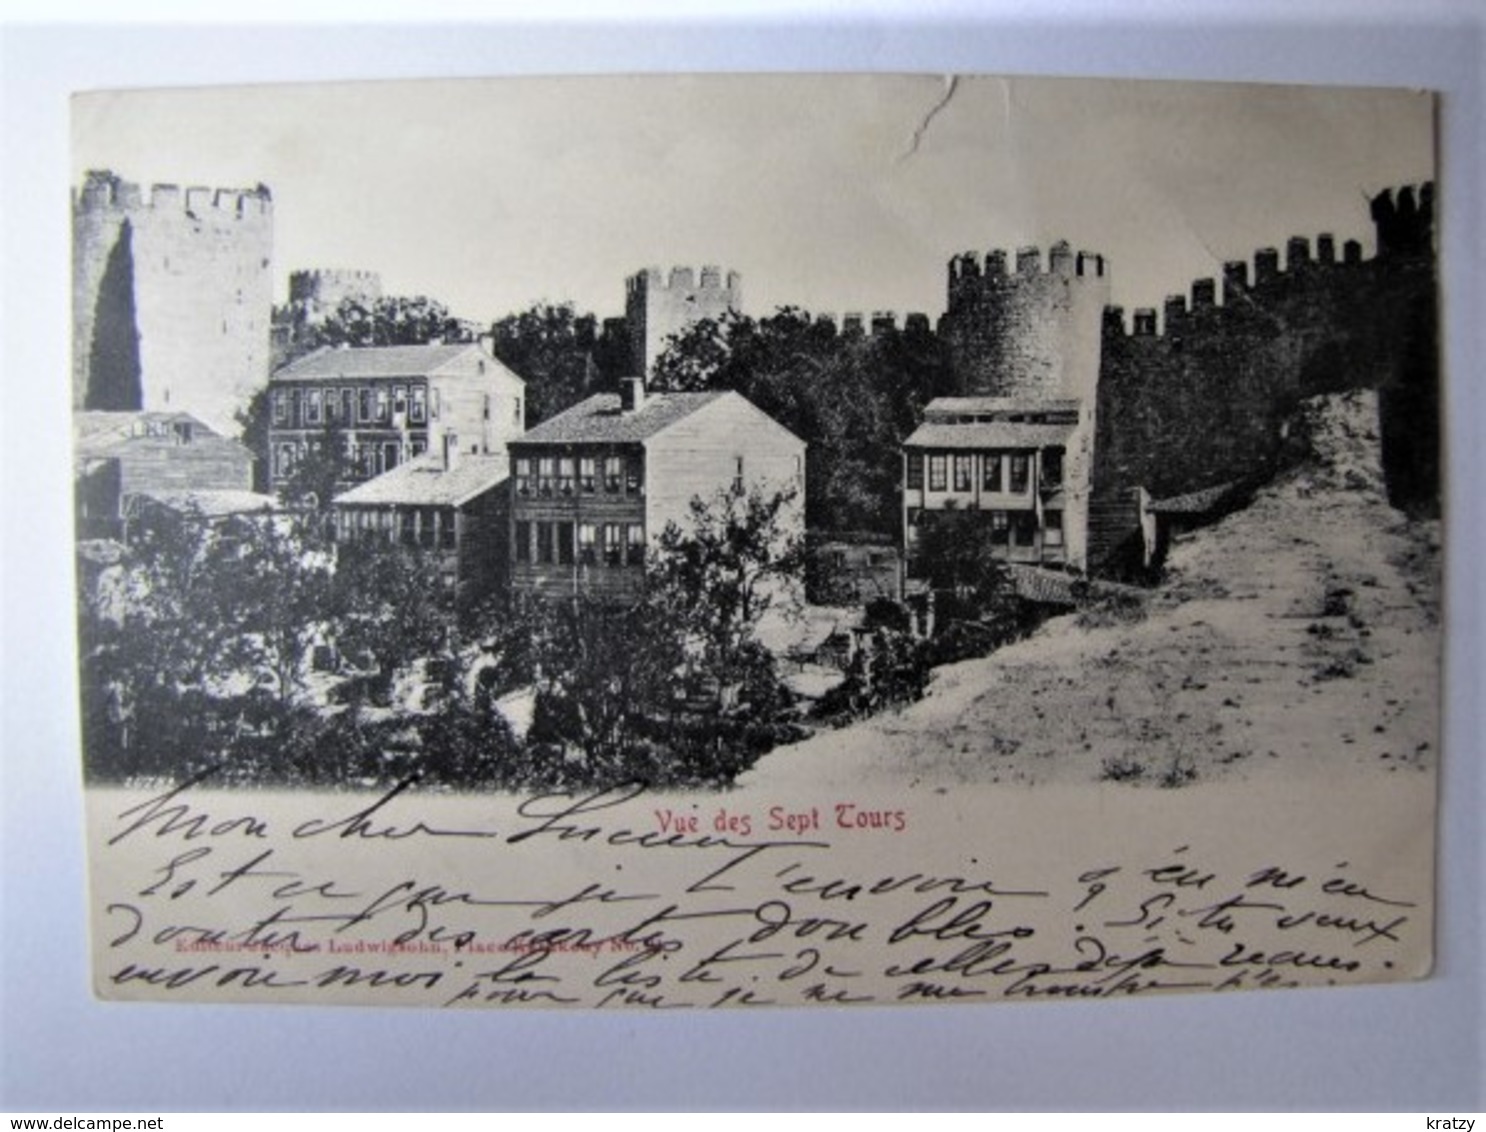 Vue des Sept Tours
Mon cher Lucien
Est ce que je t'envoie q'en n'en
douter des cartes doubles. Si tu veux
Editeur Jacques Ludwigsohn, Place Karakeuy No.
envoie moi la liste de celles déjà reçues.
pour que je ne me trompe pas.
www.delcampe.net
kratzy